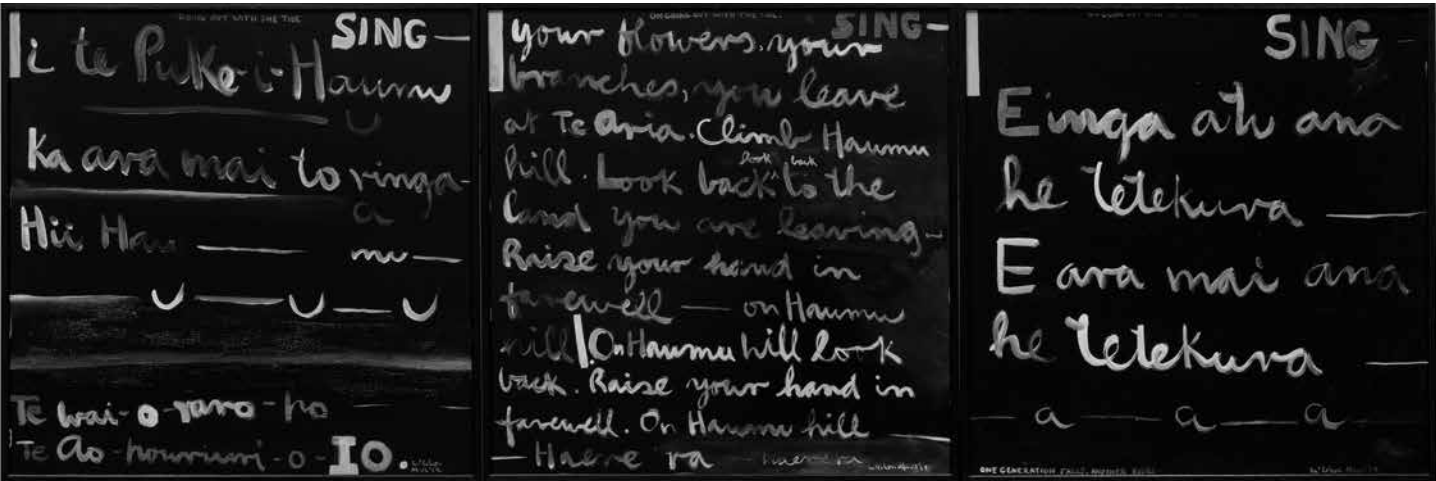 GOING OUT WITH THE TIDE
SING —
i te Puke-i-Haumu
u
Ka ara mai to ringa-
a
Hii Hau —— mu —
u — u — u
Te wai-o-raro-po —
Te Ao-pouriuri-o-IO.
ON GOING OUT WITH THE TIDE.
SING —
your flowers, your
branches, you leave
at Te Aria. Climb Haumu
hill. Look back to the
look back
land you are leaving—
Raise your hand in
farewell — on Haumu
hill On Haumu hill look
back. Raise your hand in
farewell. On Haumu hill —
— Haere ra — haere ra
SING -
E inga atu ana
he tetekura —
E ara mai ana
he tetekura —
— a — a — a —
ONE GENERATION FALLS, ANOTHER